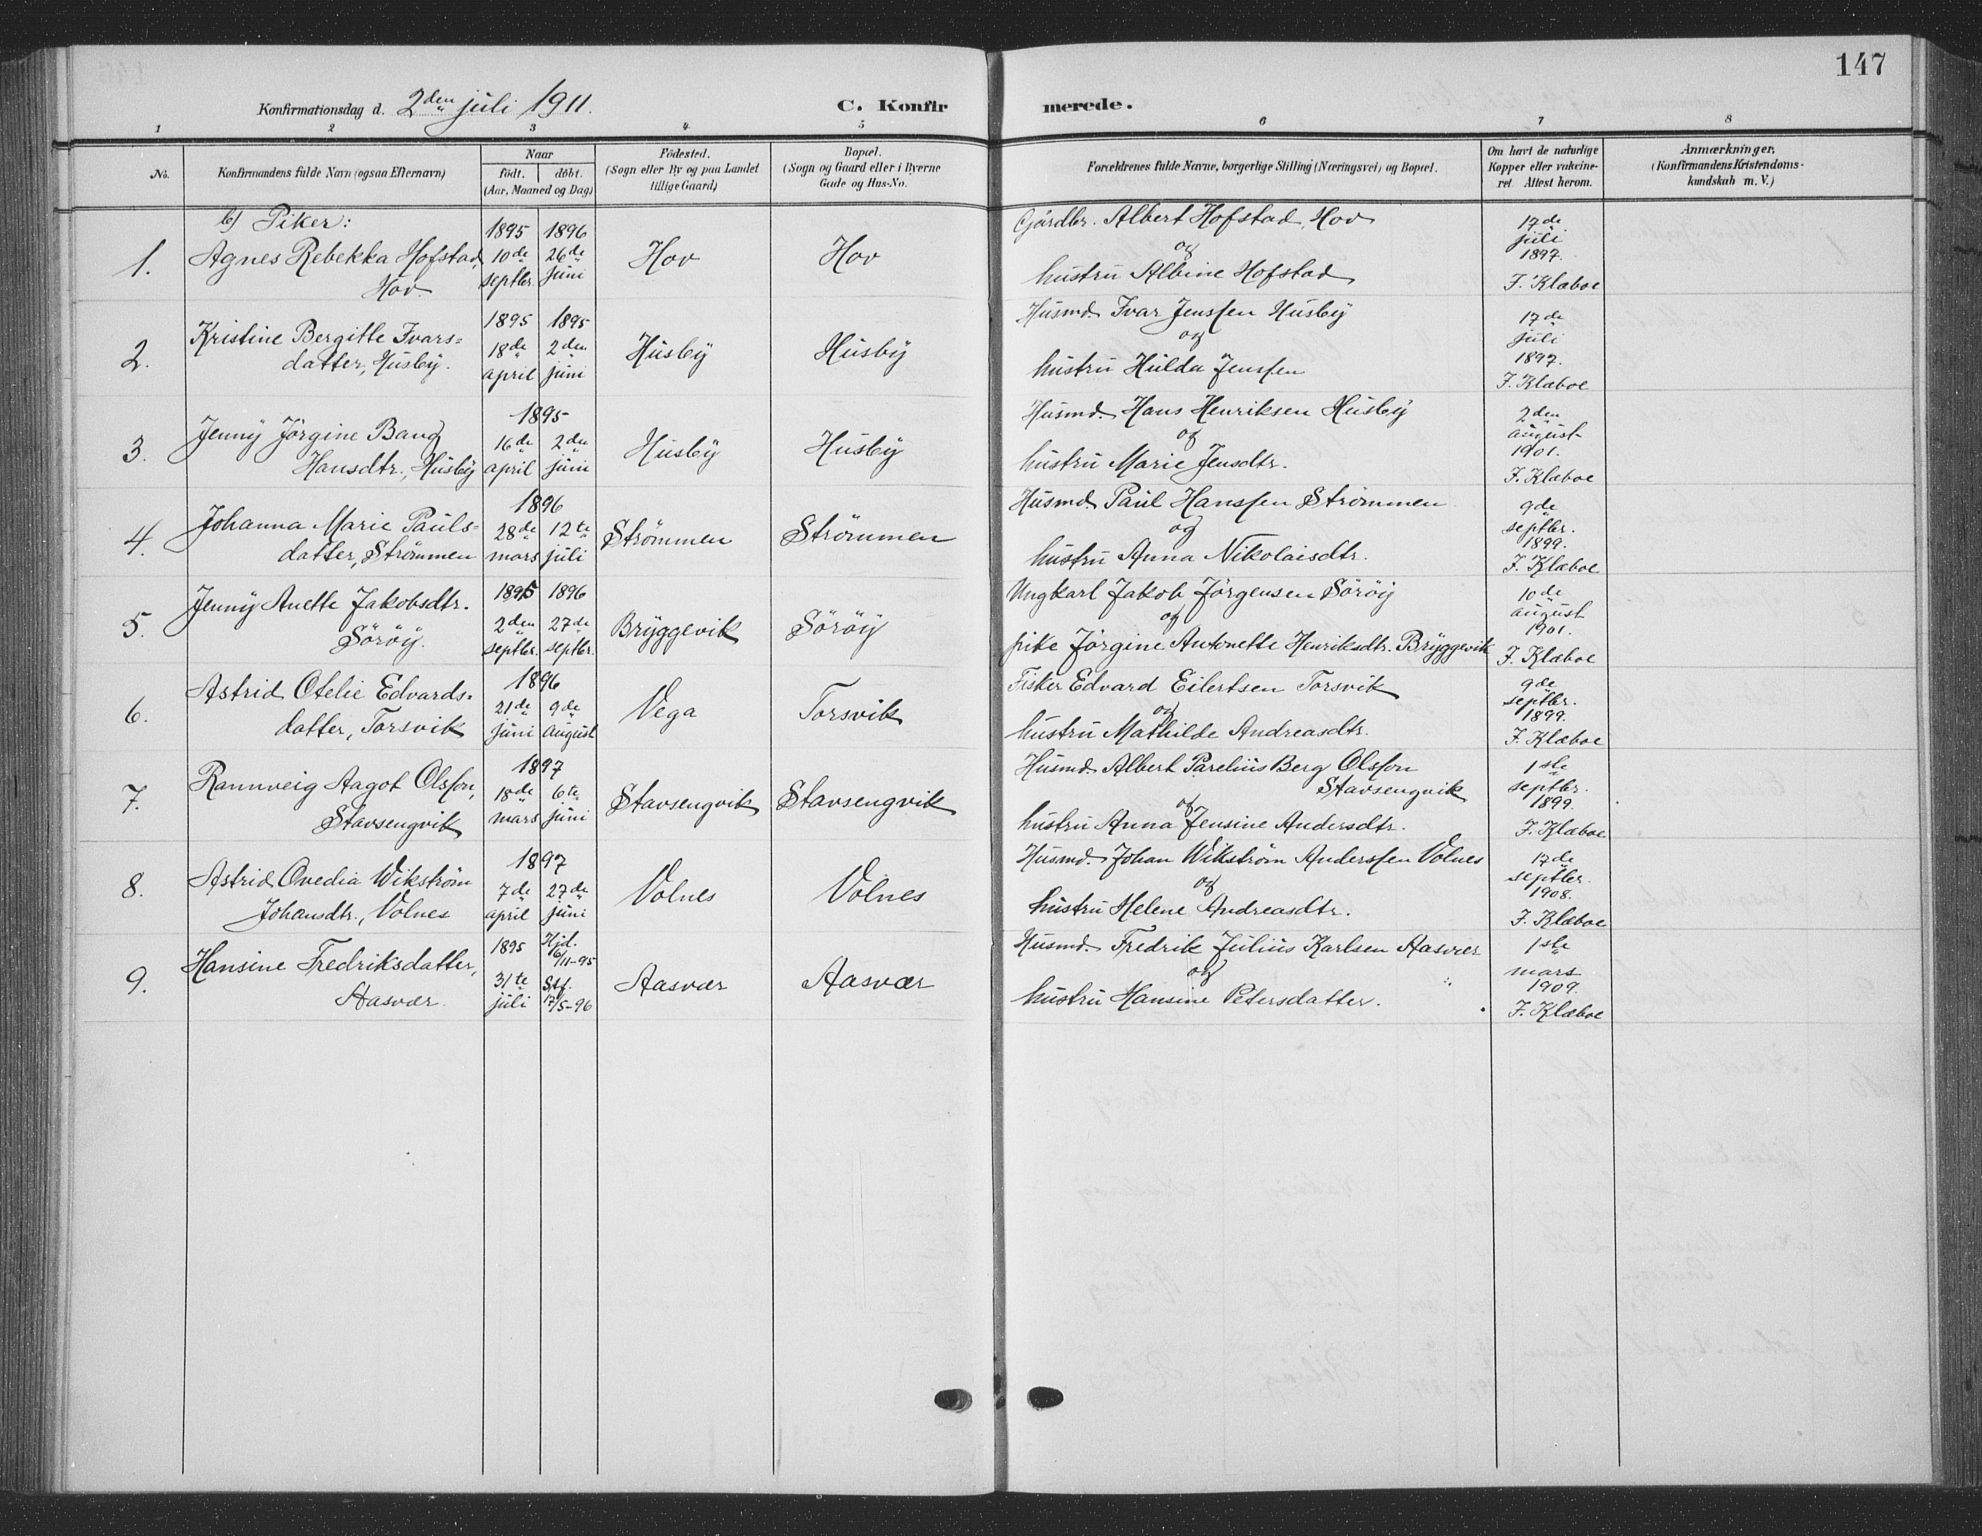 147
Konfirmationsdag d. 2den juli 1911.
C. Konfir
merede.
1 2 3 4 5 6 7 8
No.
Konfirmandens fulde Navn (ogsaa Efternavn)
Naar
født. døbt.
(Aar, Maaned og Dag)
Fødested.
(Sogn eller By og paa Landet
tillige Gaard)
Bopæl.
(Sogn og Gaard eller i Byerne
Gade og Hus-No.
Forældrenes fulde Navne, borgerlige Stilling (Næringsvei) og Bopæl.
Om havt de naturlige
Kopper eller vakcine-
ret. Attest herom.
Anmærkninger.
(Konfirmandens Kristendoms-
kundskab m. V.)
b) Piker:
1.
Agnes Rebekka Hofstad,
Hov.
1895 1896
10de 26de
septbr. juni
Hov
Hov
Gårdbr. Albert Hofstad, Hov
og
hustru Albine Hofstad
17de
juli
1897.
F. Klæboe
2.
Kristine Bergitte Ivars=
datter, Husby.
1895 1895
18de 2den
april juni
Husby
Husby
Husmd. Ivar Jenssen Husby
og
hustru Hulda Jenssen
17de
juli
1897.
F. Klæboe
3.
Jenny Jörgine Bang
Hansdtr., Husby
1895
16de 2den
april juni
Husby
Husby
Husmd. Hans Henriksen Husby
og
hustru Marie Jensdtr.
2den
august
1901.
F. Klæboe
4.
Johanna Marie Pauls=
datter, Strømmen
1896
28de 12te
mars juli
Strømmen
Strømmen
Husmd. Paul Hanssen Strømmen
og
hustru Anna Nikolaisdtr.
9de
septbr.
1899.
F. Klæboe
5.
Jenny Anette Jakobsdtr.
Sörøy.
1895 1896
2den 27de
septbr. septbr.
Bryggevik
Sörøy
Ungkarl Jakob Jörgensen Sörøy
og
pike Jörgine Antonette Henriksdtr. Bryggevik
10de
august
1901.
F. Klæboe
6.
Astrid Otelie Edvards=
datter, Torsvik
1896
21de 9de
juni august
Vega
Torsvik
Fisker Edvard Eilertsen Torsvik
og
hustru Mathilde Andreasdtr.
9de
septbr.
1899.
F. Klæboe
7.
Rannveig Aagot Olsson,
Stavsengvik
1897
18de 6te
mars juni
Stavsengvik
Stavsengvik
Husmd. Albert Parelius Berg Olsson
Stavsengvik
og
hustru Anna Jensine Andersdtr.
1ste
septbr.
1899.
F. Klæboe
8.
Astrid Ovedia Wikström
Johansdtr., Volnes
1897
7de 27de
april juni
Volnes
Volnes
Husmd. Johan Wikström Anderssen Volnes
og
hustru Helene Andreasdtr.
17de
septbr.
1908.
F. Klæboe
9.
Hansine Fredriksdatter,
Aasvær.
1895 Hjd.
6/11-95
31te Stf.
juli 17/5-96
Aasvær
Aasvær
Husmd. Fredrik Julius Karlsen Aasvær
og
hustru Hansine Petersdatter.
1ste
mars
1909.
F. Klæboe